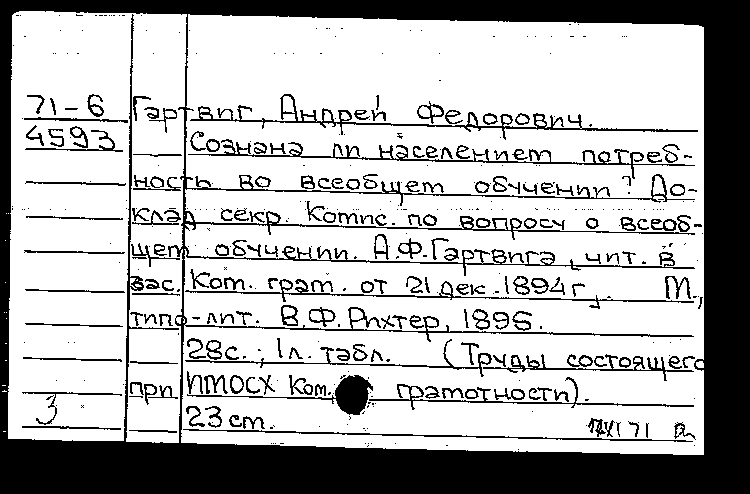 71-6 Гартвиг, Андрей Федорович.
4593 Сознана ли населением потреб-
ность во всеобщем обучении? До-
клад секр. Комис. по вопросу о всеоб-
щем обучении. А.Ф.Гартвига, чит. в
зас. Ком. грам. от 21 дек. 1894 г. М.,
типо-лит. В.Ф.Рихтер, 1895.
28с.; 1л. табл. (Труды состоящего
при ИМОСХ Ком. грамотности).
3 23 см.
71